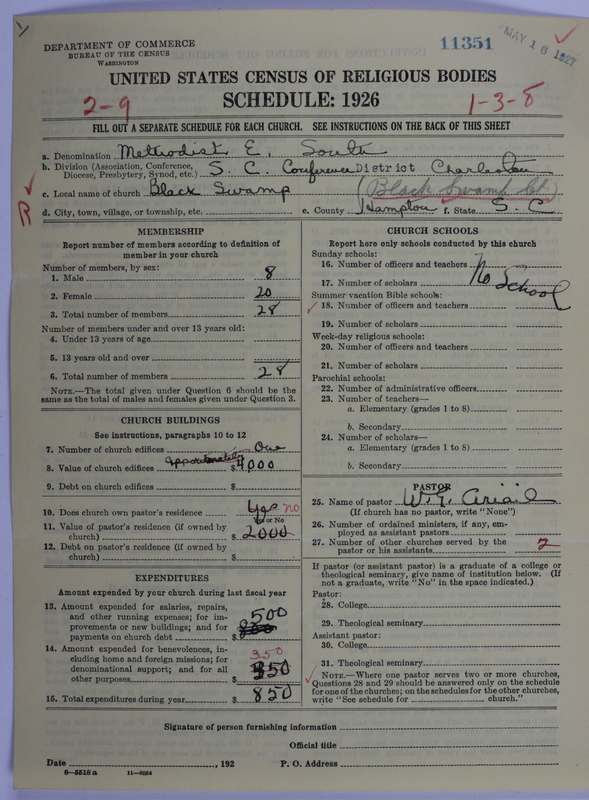 DEPARTMENT OF COMMERCE
BUREAU OF THE CENSUS
WASHINGTON
11351
MAY 16 1927
UNITED STATES CENSUS OF RELIGIOUS BODIES
SCHEDULE: 1926
2-9
1-3-8
FILL OUT A SEPARATE SCHEDULE FOR EACH CHURCH. SEE INSTRUCTIONS ON THE BACK OF THIS SHEET
a. Denomination Methodist E. South
b. Division (Association, Conference, Diocese, Presbytery, Synod, etc.) S. C. Conference District Charleston
c. Local name of church Black Swamp (Black Swamp Ch.)
R
d. City, town, village, or township, etc. e. County Hampton f. State S. C
MEMBERSHIP
Report number of members according to definition of
member in your church
Number of members, by sex:
1. Male 8
2. Female 20
3. Total number of members 28
Number of members under and over 13 years old:
4. Under 13 years of age
5. 13 years old and over
6. Total number of members 28
NOTE.—The total given under Question 6 should be the
same as the total of males and females given under Question 3.
CHURCH BUILDINGS
See instructions, paragraphs 10 to 12
7. Number of church edifices One
8. Value of church edifices $ 4000
9. Debt on church edifices $
10. Does church own pastor's residence Yes no
Yes or No
11. Value of pastor's residence (if owned by
church) $ 2000
12. Debt on pastor's residence (if owned by
church) $
EXPENDITURES
Amount expended by your church during last fiscal year
13. Amount expended for salaries, repairs,
and other running expenses; for im-
provements or new buildings; and for
payments on church debt $ 500
14. Amount expended for benevolences, in-
cluding home and foreign missions; for
denominational support; and for all
other purposes $ 350 350
15. Total expenditures during year $ 850
CHURCH SCHOOLS
Report here only schools conducted by this church
Sunday schools:
16. Number of officers and teachers
17. Number of scholars No School
Summer vacation Bible schools:
18. Number of officers and teachers
19. Number of scholars
Week-day religious schools:
20. Number of officers and teachers
21. Number of scholars
Parochial schools:
22. Number of administrative officers
23. Number of teachers—
a. Elementary (grades 1 to 8)
b. Secondary
24. Number of scholars—
a. Elementary (grades 1 to 8)
b. Secondary
PASTOR
25. Name of pastor W. G. Ariail
(If church has no pastor, write "None")
26. Number of ordained ministers, if any, em-
ployed as assistant pastors
27. Number of other churches served by the
pastor or his assistants 2
If pastor (or assistant pastor) is a graduate of a college or
theological seminary, give name of institution below. (If
not a graduate, write "No" in the space indicated.)
Pastor:
28. College
29. Theological seminary
Assistant pastor:
30. College
31. Theological seminary
NOTE.—Where one pastor serves two or more churches,
Questions 28 and 29 should be answered only on the schedule
for one of the churches; on the schedules for the other churches,
write "See schedule for church."
Signature of person furnishing information
Official title
Date , 192 P. O. Address
8-5518 a 11-9054